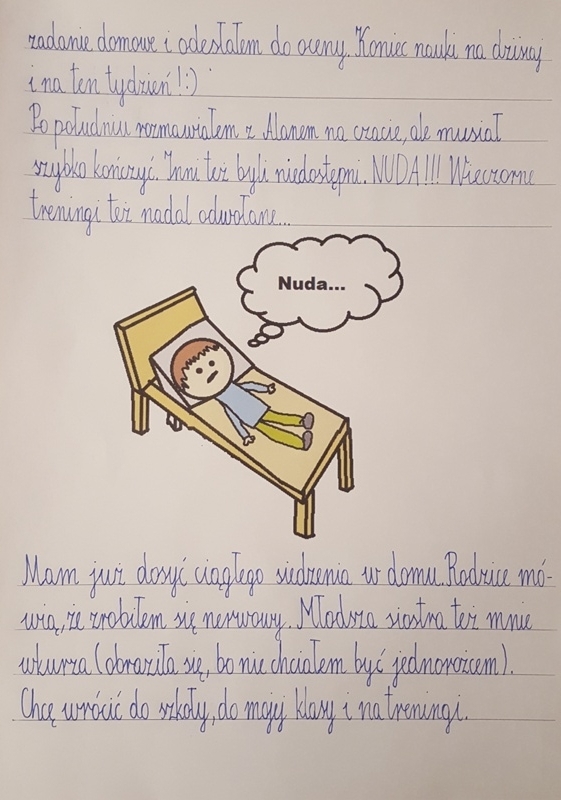 zadanie domowe i odesłałem do oceny. Koniec nauki na dzisiaj
i na ten tydzień !:)
Po południu rozmawiałem z Alanem na czacie, ale musiał
szybko kończyć. Inni też byli niedostępni. NUDA!!! Wieczorne
treningi też nadal odwołane...
Nuda...
Mam już dosyć ciągłego siedzenia w domu. Rodzice mó-
wią, że zrobiłem się nerwowy. Młodsza siostra też mnie
wkurza (obraziła się, bo nie chciałem być jednorożcem).
Chcę wrócić do szkoły, do mojej klasy i na treningi.